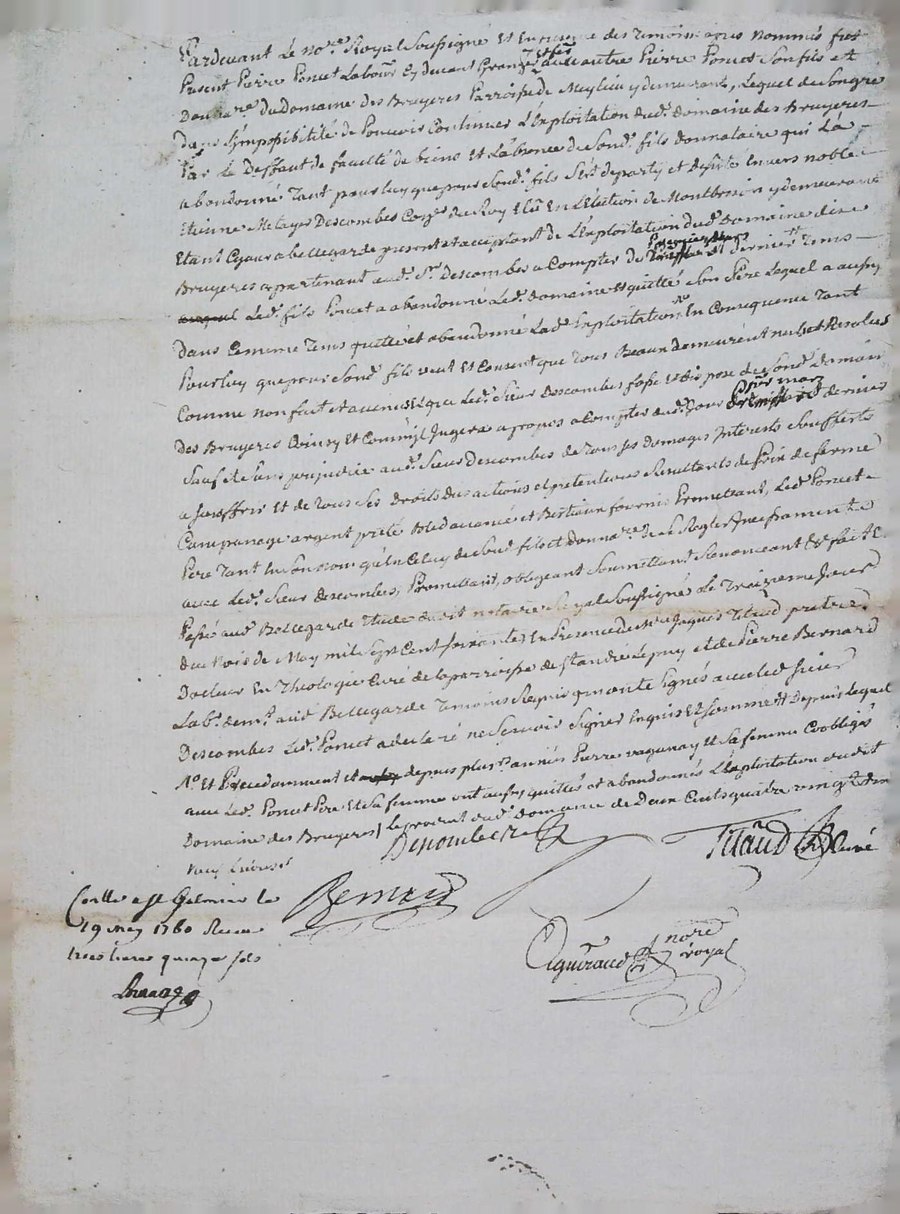 Pardevant Le no.re Royal Soussigné Et En presence des temoins apres Nommés fut
Present Pierre Poncet Labou.r Cy devant Granger avec autre Pierre Poncet Son fils et
Donna.re du Domaine des Bruyeres Parroisse de Meylieu y demeurant, Lequel de Son gré
Dans L'impossibilité de Pouvoir Continuer L'Exploitation dud. domaine des Bruyeres
Par Le Deffaut de faculté de biens et L'absence de Sond. fils donnataire qui L'a
abandonné Tant pour luy que pour Sond. fils S'est departy et desisté Envers noble
Etienne Metayer Descombes Con.er du Roy Elu En L'Election de Montbrison y demeurant
Etant Ce jour a bellegarde present et acceptant de L'Exploitation dud. Domaine des
Bruyeres apartenant aud. S.r Descombes a Compter du premier mars dernier tems
Led. fils Poncet a abandonné Led. domaine Et quitté Son Pere Lequel a aussy
Dans Ce meme Tems quitté et abandonné Lad. Exploitation En Consequence Tant
Pour luy que pour Sond. fils veut Et Consent que Tous Beaux demeurent nuls et Resolus
Comme non fait et avenus Et que Led. Sieur Descombes fasse Et dispose de Sond. domaine
Des Bruyeres Comm'il Jugera a propos a Compter dud. Jour p.er mars dernier
Sauf et Sans prejudice aud. Sieur Descombes de Tous Ses domages Interets Soufferts
a Souffrir Et de Tous Ses droits dus actions et pretentions Resultants de Prix de ferme
Campanage argent preté Bled avancé et Bestiaux fournis Promettant, Led. Poncet
Pere Tant En Son nom qu'En Celuy de Sond. fils et Donna.re De Regler Incessamment
avec Led. Sieur Descombes, Promettant, obligeant Soumettant Renonceant &c fait Et
Passé aud. Bellegarde Etude dudit notaire Royal Soussigné Le Treizieme Jour
du Mois de May mil Sept Cent Soixante En Presence de M.re Jaques Titaud pretre
Docteur En Theologie Curé de la parroisse de St andré Le puy et de Pierre Bernard
Lab.r dem.t aud. Bellegarde Temoins Requis qui ont Signés avec led. Sieur
Descombes Led. Poncet a declaré ne Scavoir Signer Enquis Et Sommé Depuis Lequel
Et Precedamment depuis plus.rs années Pierre vaganay Et Sa femme Coobligés
avec Led. Poncet Pere Et Sa femme ont aussy quittés et abandonnés L'Exploitation dudit
Domaine des Bruyeres, Le present dud. domaine de Deux Cents quatre vingt dix
neuf Livres
Descombes
Titaud Curé
Bernard
Coullé a St Galmier le
19 may 1760 Recu
trois livres quinze sols
Aguiraud no.re royal